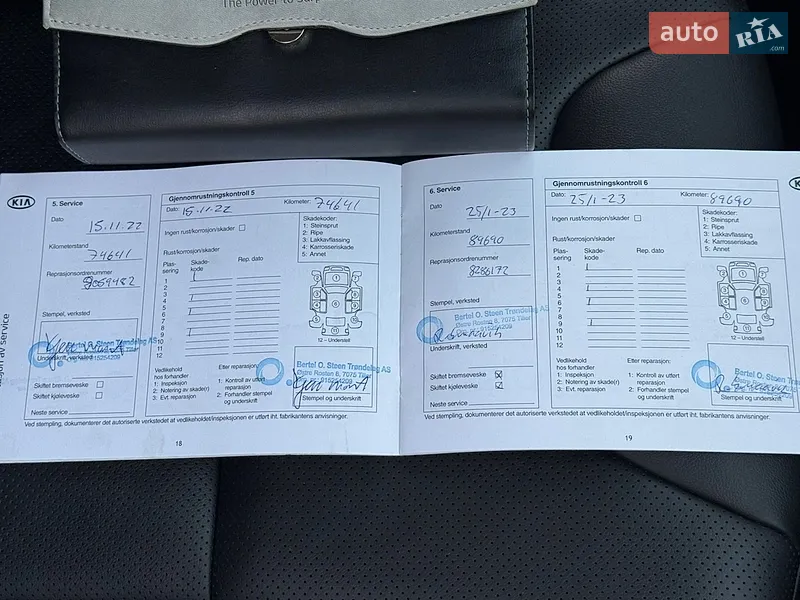 The Power to Surp
auto RIA .com
KIA
5. Service
Dato
15.11.22
Kilometerstand
74641
Reprasjonsordrenummer
Stempel, verksted
Bertel O. Steen Trøndelag AS
Østre Rosten 6, 7075 Tiller
915254209
Underskrift, verksted
Skiftet bremsevæske
Skiftet kjølevæske
Neste service
Gjennomrustningskontroll 5
Dato: 15.11-22
Kilometer: 74641
Ingen rust/korrosjon/skader
Rust/korrosjon/skader
Plas-
sering
Skade-
kode
Rep. dato
1
2
3
4
5
6
7
8
9
10
11
12
Skadekoder:
1: Steinsprut
2: Ripe
3: Lakkavflassing
4: Karosseriskade
5: Annet
12 – Understell
Vedlikehold
hos forhandler
1: Inspeksjon
2: Notering av skade(r)
3: Evt. reparasjon
Etter reparasjon:
1: Kontroll av utført
reparasjon
2: Forhandler stempel
og underskrift
Bertel O. Steen Trøndelag AS
Østre Rosten 6, 7075 Tiller
915254209
Stempel og underskrift
Ved stempling, dokumenterer det autoriserte verkstedet at vedlikeholdet/inspeksjonen er utført iht. fabrikantens anvisninger.
18
6. Service
Dato
25/1-23
Kilometerstand
89690
Reprasjonsordrenummer
8286172
Stempel, verksted
Bertel O. Steen Trøndelag AS
Østre Rosten 6, 7075 Tiller
915254209
Underskrift, verksted
Skiftet bremsevæske
Skiftet kjølevæske
Neste service
Gjennomrustningskontroll 6
Dato: 25/1-23
Kilometer: 89690
Ingen rust/korrosjon/skader
Rust/korrosjon/skader
Plas-
sering
Skade-
kode
Rep. dato
1
2
3
4
5
6
7
8
9
10
11
12
Skadekoder:
1: Steinsprut
2: Ripe
3: Lakkavflassing
4: Karrosseriskade
5: Annet
12 – Understell
Vedlikehold
hos forhandler
1: Inspeksjon
2: Notering av skade(r)
3: Evt. reparasjon
Etter reparasjon:
1: Kontroll av utført
reparasjon
2: Forhandler stempel
og underskrift
Bertel O. Steen
Østre Rosten 6, 7075
Stempel og underskrift
Ved stempling, dokumenterer det autoriserte verkstedet at vedlikeholdet/inspeksjonen er utført iht. fabrikantens anvisninger.
19